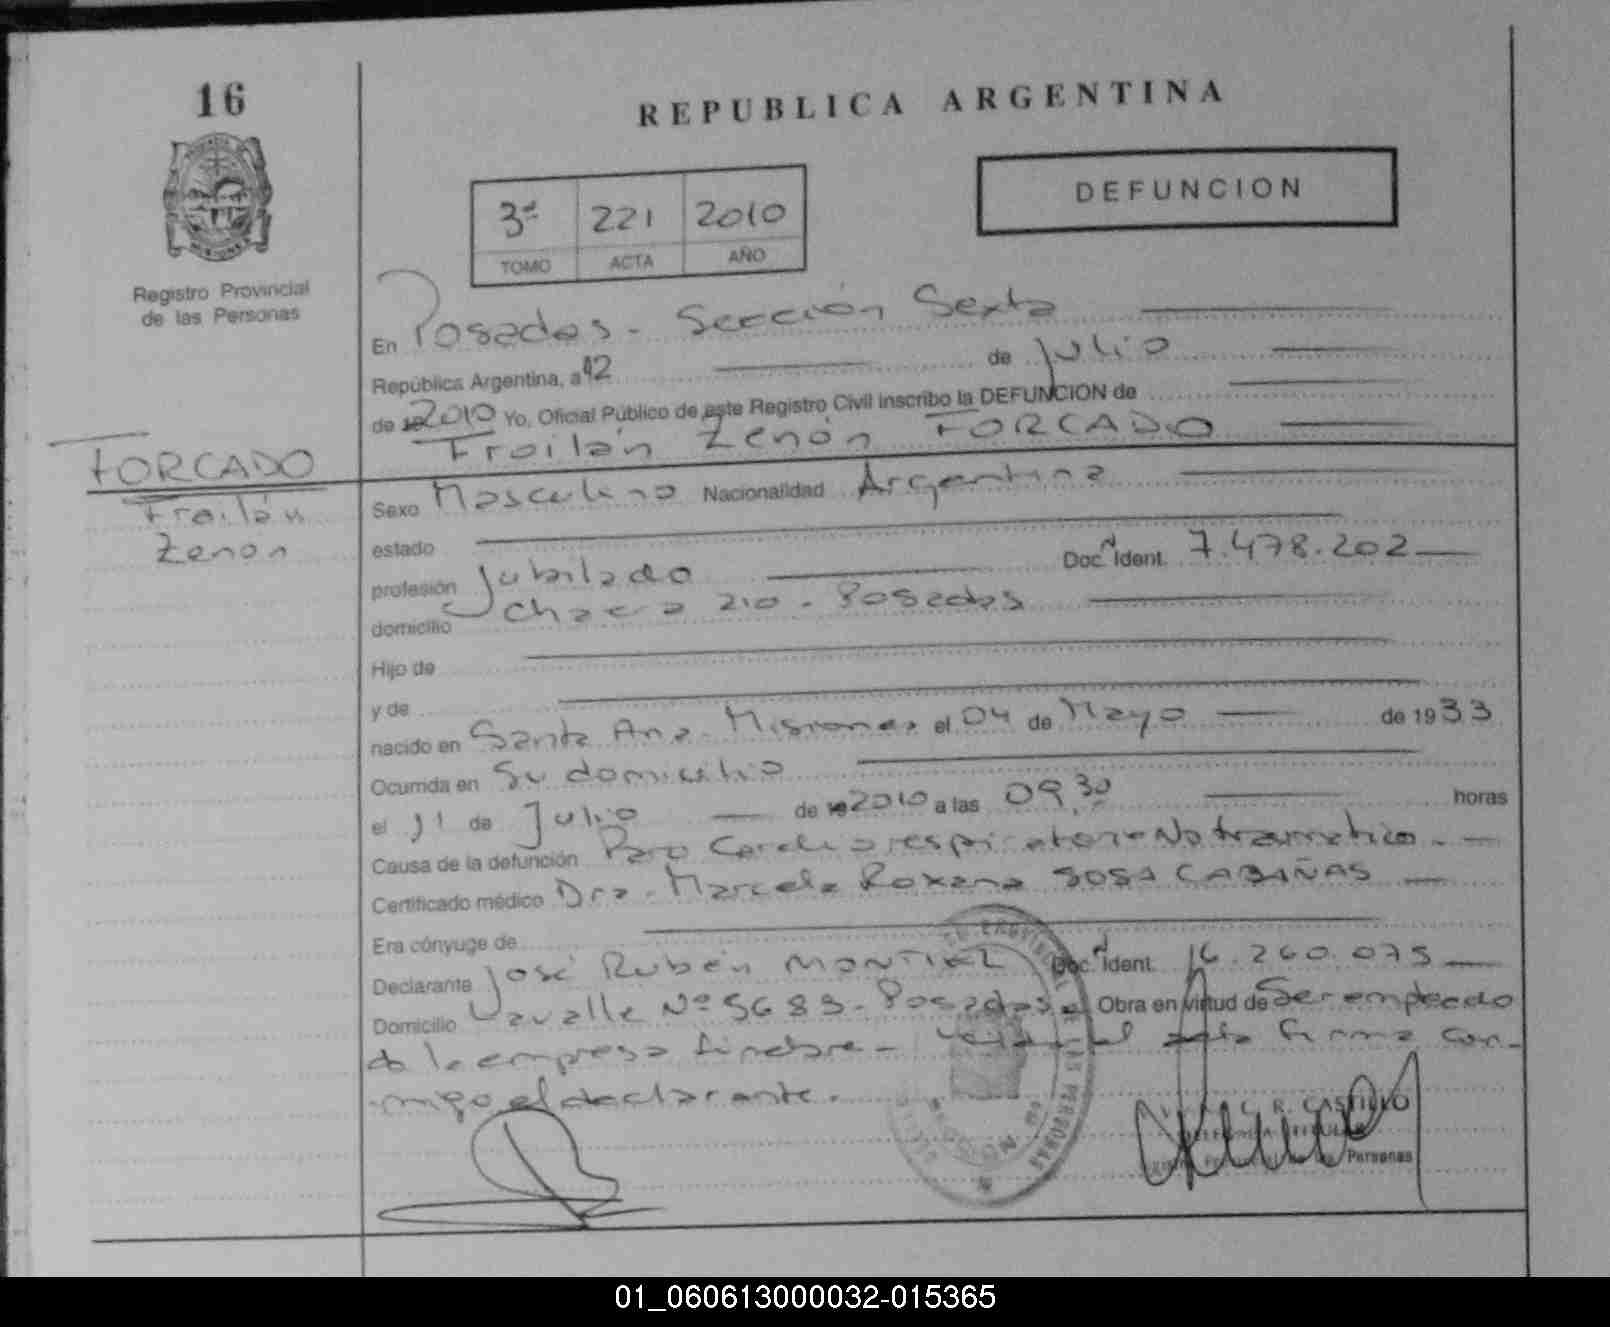 16
REPUBLICA ARGENTINA
DEFUNCION
3º 221 2010
TOMO ACTA AÑO
Registro Provincial
de las Personas
En Posadas - Sección Sexta
República Argentina, a 12 de Julio
de 19 2010 Yo, Oficial Público de este Registro Civil inscribo la DEFUNCION de
Froilán Zenón FORCADO
FORCADO
Froilán
Zenón
Sexo Masculino Nacionalidad Argentina
estado
profesión Jubilado Doc. Ident. 7.478.202
domicilio Chacra 210 - Posadas
Hijo de
y de
nacido en Santa Ana - Misiones el 04 de Mayo de 1933
Ocurrida en Su domicilio
el 11 de Julio de 19 2010 a las 09,30 horas
Causa de la defunción Paro Cardiorespiratorio No traumatico.
Certificado médico Dra. Marcela Roxana SOSA CABAÑAS
Era cónyuge de
Declarante José Rubén MONTIEL Doc. Ident. 16.260.075
Domicilio Lavalle Nº 5683 - Posadas Obra en virtud de Ser empleado
de la empresa funebre - Leida el acta firma con-
migo el declarante.
R. CASTILLO
Personas
01_060613000032-015365